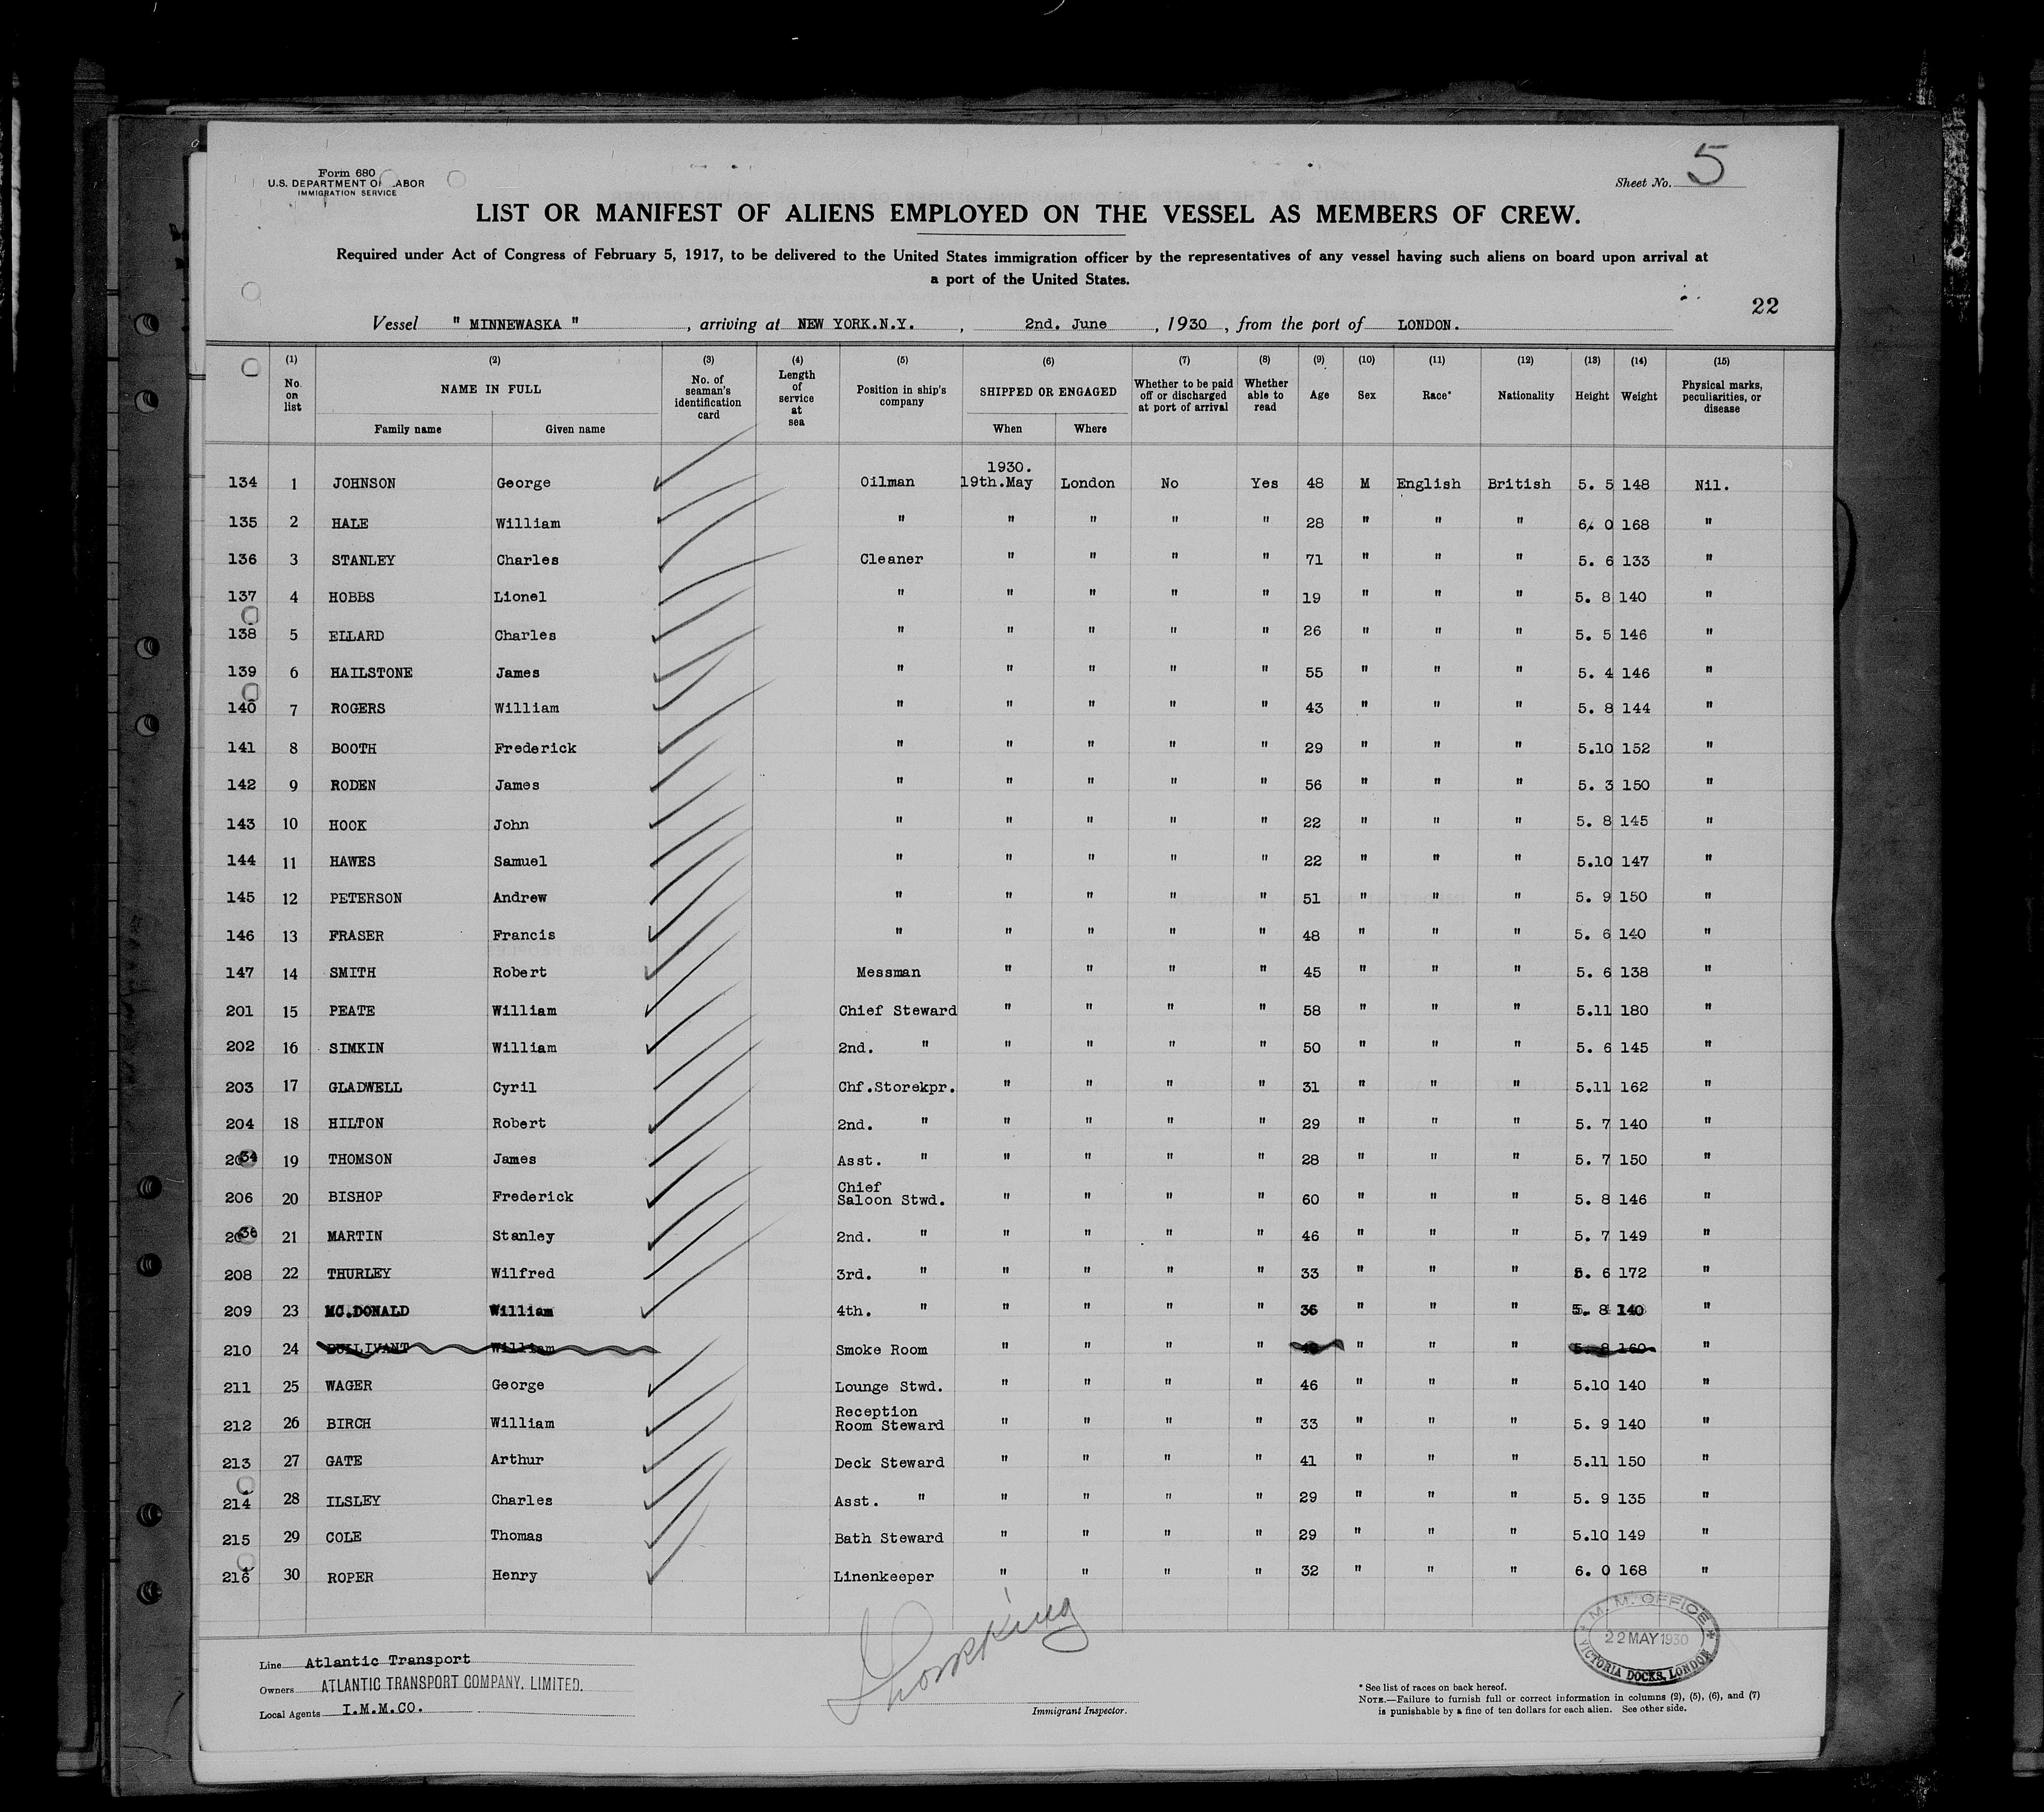 Form 680
U.S. DEPARTMENT OF LABOR
IMMIGRATION SERVICE
Sheet No. 5
LIST OR MANIFEST OF ALIENS EMPLOYED ON THE VESSEL AS MEMBERS OF CREW.
Required under Act of Congress of February 5, 1917, to be delivered to the United States immigration officer by the representatives of any vessel having such aliens on board upon arrival at
a port of the United States.
22
Vessel " MINNEWASKA ", arriving at NEW YORK.N.Y., 2nd. June, 1930, from the port of LONDON.
(1) No. on list (2) NAME IN FULL Family name Given name (3) No. of seaman's identification card (4) Length of service at sea (5) Position in ship's company (6) SHIPPED OR ENGAGED When Where (7) Whether to be paid off or discharged at port of arrival (8) Whether able to read (9) Age (10) Sex (11) Race* (12) Nationality (13) Height (14) Weight (15) Physical marks, peculiarities, or disease
1930.
134 1 JOHNSON George Oilman 19th.May London No Yes 48 M English British 5. 5 148 Nil.
135 2 HALE William " " " " " 28 " " " 6. 0 168 "
136 3 STANLEY Charles Cleaner " " " " 71 " " " 5. 6 133 "
137 4 HOBBS Lionel " " " " " 19 " " " 5. 8 140 "
138 5 ELLARD Charles " " " " " 26 " " " 5. 5 146 "
139 6 HAILSTONE James " " " " " 55 " " " 5. 4 146 "
140 7 ROGERS William " " " " " 43 " " " 5. 8 144 "
141 8 BOOTH Frederick " " " " " 29 " " " 5.10 152 "
142 9 RODEN James " " " " " 56 " " " 5. 3 150 "
143 10 HOOK John " " " " " 22 " " " 5. 8 145 "
144 11 HAWES Samuel " " " " " 22 " " " 5.10 147 "
145 12 PETERSON Andrew " " " " " 51 " " " 5. 9 150 "
146 13 FRASER Francis " " " " " 48 " " " 5. 6 140 "
147 14 SMITH Robert Messman " " " " 45 " " " 5. 6 138 "
201 15 PEATE William Chief Steward " " " " 58 " " " 5.11 180 "
202 16 SIMKIN William 2nd. " " " " " 50 " " " 5. 6 145 "
203 17 GLADWELL Cyril Chf.Storekpr. " " " " 31 " " " 5.11 162 "
204 18 HILTON Robert 2nd. " " " " " 29 " " " 5. 7 140 "
19 THOMSON James Asst. " " " " " 28 " " " 5. 7 150 "
Chief
206 20 BISHOP Frederick Saloon Stwd. " " " " 60 " " " 5. 8 146 "
21 MARTIN Stanley 2nd. " " " " " 46 " " " 5. 7 149 "
208 22 THURLEY Wilfred 3rd. " " " " " 33 " " " 5. 6 172 "
209 23 MC.DONALD William 4th. " " " " " 36 " " " 5. 8 140 "
210 24 BULLIVANT William Smoke Room " " " " " " " 5. 8 160 "
211 25 WAGER George Lounge Stwd. " " " " 46 " " " 5.10 140 "
Reception
212 26 BIRCH William Room Steward " " " " 33 " " " 5. 9 140 "
213 27 GATE Arthur Deck Steward " " " " 41 " " " 5.11 150 "
214 28 ILSLEY Charles Asst. " " " " " 29 " " " 5. 9 135 "
215 29 COLE Thomas Bath Steward " " " " 29 " " " 5.10 149 "
216 30 ROPER Henry Linenkeeper " " " " 32 " " " 6. 0 168 "
M. M. OFFICE
22 MAY 1930
VICTORIA DOCKS, LONDON
Line Atlantic Transport
Owners ATLANTIC TRANSPORT COMPANY, LIMITED.
Local Agents I.M.M.CO.
Immigrant Inspector.
* See list of races on back hereof.
NOTE.—Failure to furnish full or correct information in columns (2), (5), (6), and (7)
is punishable by a fine of ten dollars for each alien. See other side.